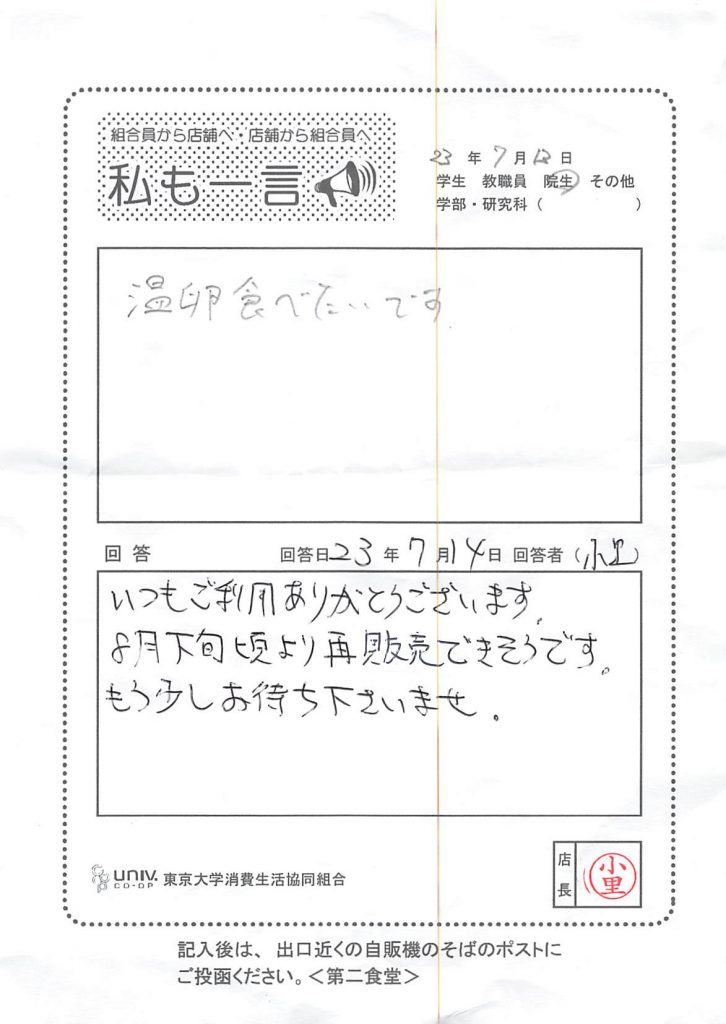 組合員から店舗へ・店舗から組合員へ
私も一言
23 年 7 月 12 日
学生 教職員 院生 その他
学部・研究科( )
温卵食べたいです
回答 回答日 23 年 7 月 14 日 回答者(小里)
いつもご利用ありがとうございます。
8月下旬頃より再販売できそうです。
もう少しお待ち下さいませ。
店長
小里
UNIV. CO-OP 東京大学消費生活協同組合
記入後は、出口近くの自販機のそばのポストに
ご投函ください。<第二食堂>